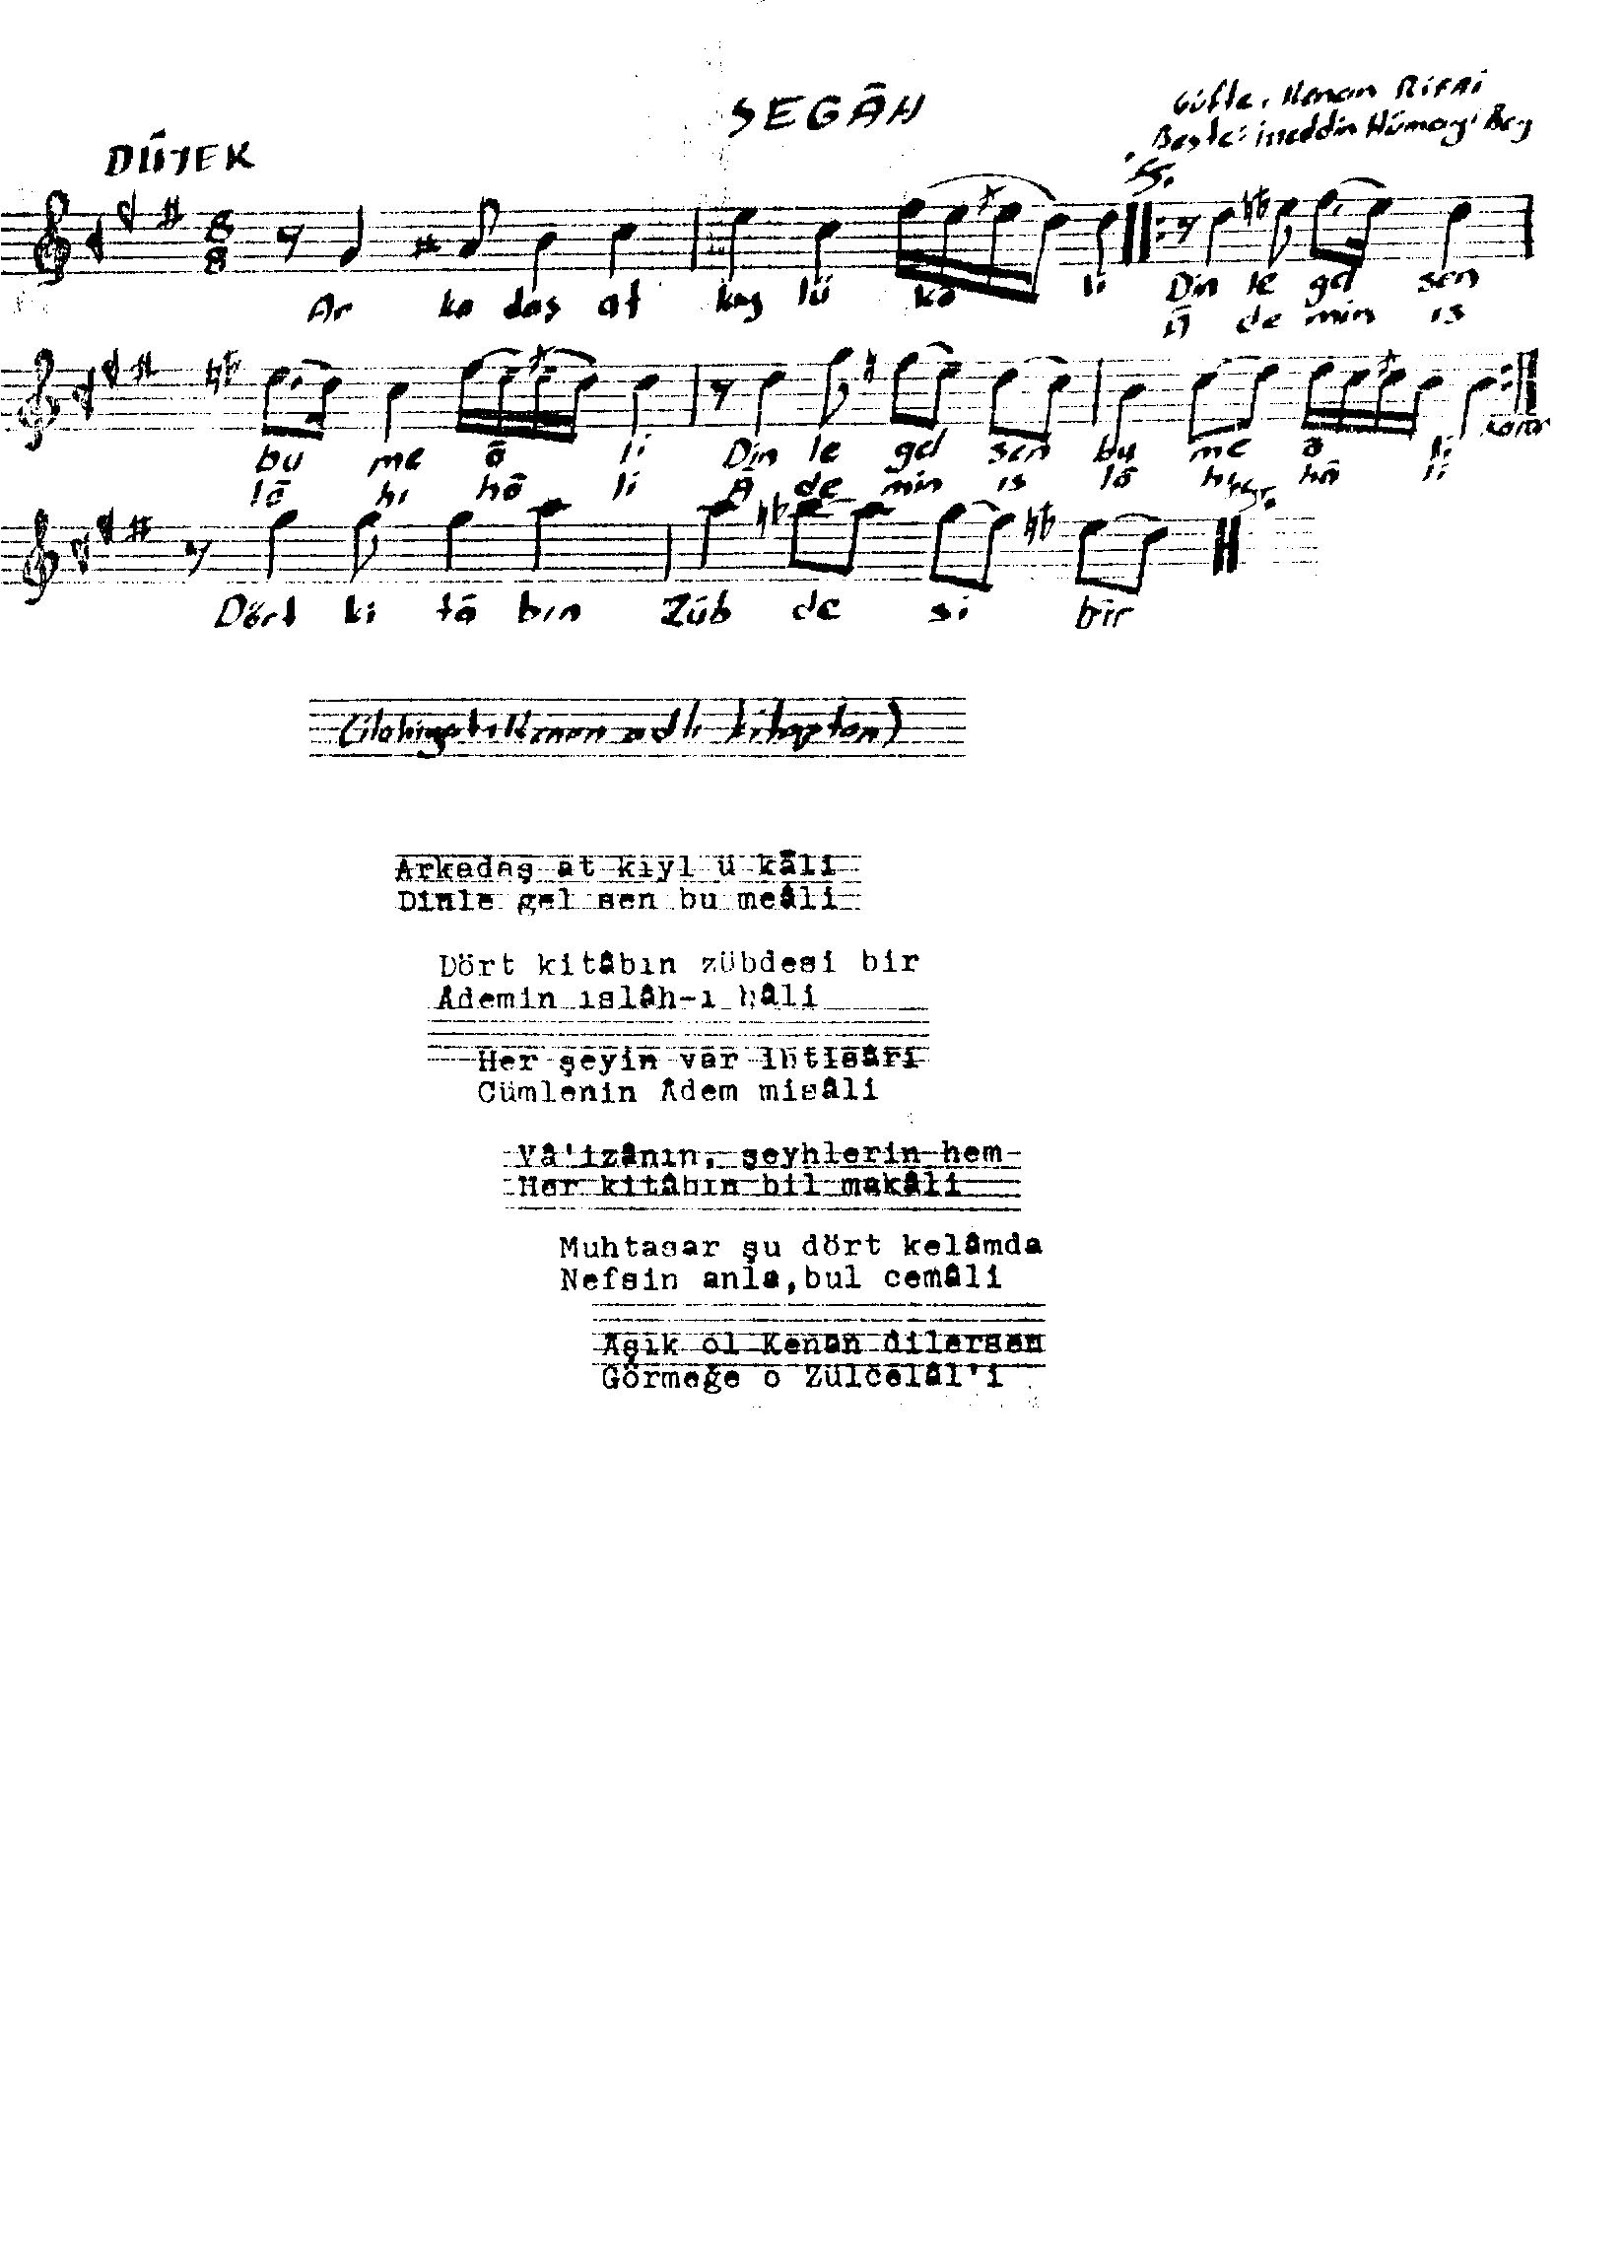 SEGÂH
Güfte: Kenan Rifai
Beste: İzzeddin Hümayi Bey
DÜYEK
8
8
Ar ka daş at kıy lü ka li Din le gel sen
Â de min ıs
bu me â li Din le gel sen bu me â li karar
lâ hı hâ li Â de min ıs lâ hı hâ li
Dört ki tâ bın Züb de si bir
(ilahiyatı Kenan adlı kitaptan)
Arkadaş at kıyl u kâli
Dinle gel sen bu meâli
Dört kitâbın zübdesi bir
Âdemin ıslâh-ı hâli
Her şeyin var ihtisâri
Cümlenin Âdem misâli
Vâ'izânın, şeyhlerin hem
Her kitâbın bil makâli
Muhtasar şu dört kelâmda
Nefsin anla,bul cemâli
Aşık ol Kenan dilersen
Görmeğe o Zülcelâl'i